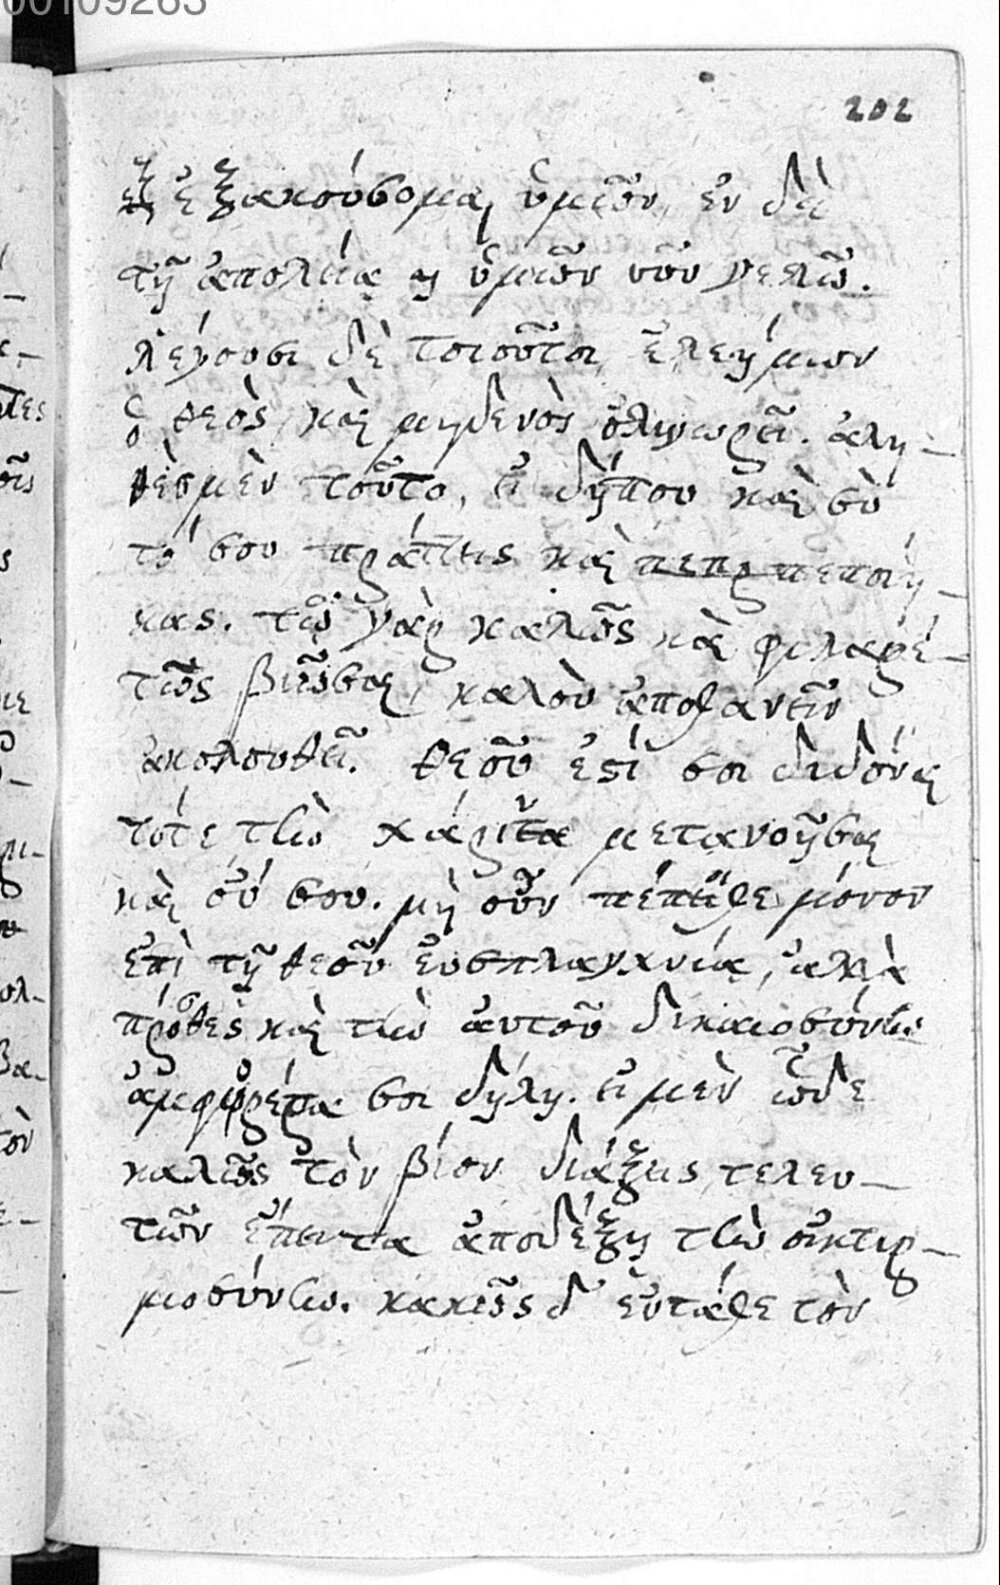 00109263
202
ἐξ ἐξακούσομαι ὑμῶν, ἐν δὲ
τῇ ἀπολείᾳ ὑμῶν νῦν γελῶ.
λέγουσι δὲ τοιοῦτοι, ἐλεήμων
ὁ θεὸς, καὶ μηδενὸς ὀλιγωρεῖ. ἀλη-
θὲς μὲν τοῦτο, εἰ δήπου καὶ σὺ
τό σου πράττεις καὶ πεπρ πεποίη-
κας. τῷ γὰρ καλῶς καὶ φιλαρέ-
τως βιῶσαι, καλὸν ἀποθανεῖν
ἀκολουθεῖ. θεοῦ ἐστί σοι διδόναι
τότε τὴν χάριτα μετανοῆσαι
καὶ οὔ σου. μὴ οὖν πέποιθε μόνον
ἐπὶ τῇ θεοῦ εὐσπλαγχνίᾳ, ἀλλὰ
πρόσθες καὶ τὴν αὐτοῦ δικαιοσύνην
ἀμφότερά σοι δήλη. εἰ μὲν ὧδε
καλῶς τὸν βίον διάξεις τελευ-
τῶν ἔπειτα ἀποδέξῃ τὴν οἰκτιρ-
μοσύνην. κακῶς δ' ἐντάθε τὸν